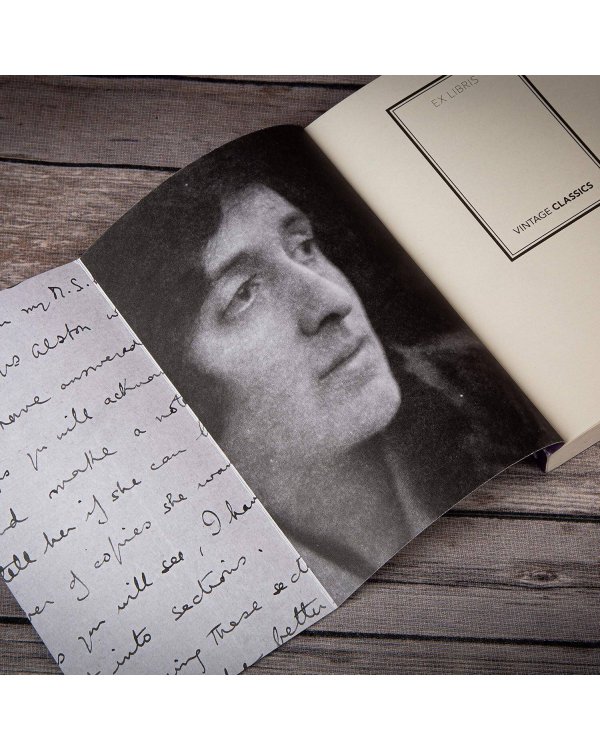 n my M.S.
us Alston w
have answered
s you will ackno
nd make a not
tell her if she can b
er of copies she wa
s you will see, I hav
t into sections.
ing these sect
be better
EX LIBRIS
VINTAGE CLASSICS